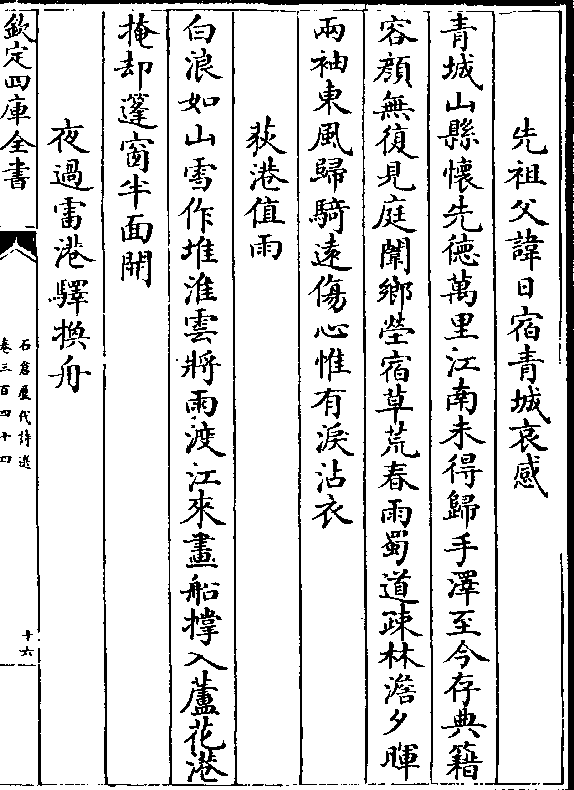 先祖父諱日宿青城哀感
青城山縣懷先德萬里江南未得歸手澤至今存典籍
容顏無復見庭闈鄉塋宿草荒春雨蜀道疎林澹夕暉
兩袖東風歸騎遠傷心惟有淚沾衣
荻港值雨
白浪如山雪作堆淮雲將雨渡江來畫船撐入蘆花港
掩却篷窗半面開
夜過雷港驛換舟
欽定四庫全書
石倉歷代詩選
卷三百四十四
十六